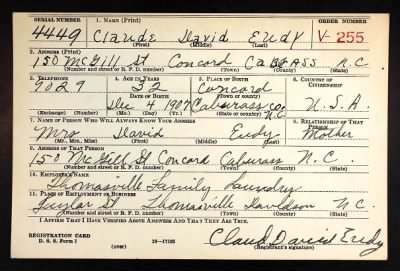 SERIAL NUMBER 1. NAME (Print) ORDER NUMBER
4449 Claude David Eudy V-255
(First) (Middle) (Last)
2. ADDRESS (Print)
150 McGill St Concord Cabarass N.C.
(Number and street or R. F. D. number) (Town) (County) (State)
3. TELEPHONE 4. AGE IN YEARS 5. PLACE OF BIRTH 6. COUNTRY OF CITIZENSHIP
9029 32 Concord
DATE OF BIRTH (Town or county)
Dec 4 1907 Cabarass Co. N.C. U.S.A.
(Exchange) (Number) (Mo.) (Day) (Yr.) (State or country)
7. NAME OF PERSON WHO WILL ALWAYS KNOW YOUR ADDRESS 8. RELATIONSHIP OF THAT PERSON
Mrs David Eudy Mother
(Mr., Mrs., Miss) (First) (Middle) (Last)
9. ADDRESS OF THAT PERSON
150 McGill St Concord Cabarass N.C.
(Number and street or R. F. D. number) (Town) (County) (State)
10. EMPLOYER'S NAME
Thomasville Family Laundry
11. PLACE OF EMPLOYMENT OR BUSINESS
Taylor St Thomasville Davidson N.C.
(Number and street or R. F. D. number) (Town) (County) (State)
I AFFIRM THAT I HAVE VERIFIED ABOVE ANSWERS AND THAT THEY ARE TRUE.
REGISTRATION CARD
D. S. S. Form 1 16-17105 Claud David Eudy
(Registrant's signature)